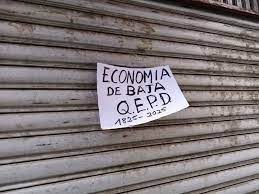 ECONOMIA
DE BAJA
Q.E.P.D
1825-2025